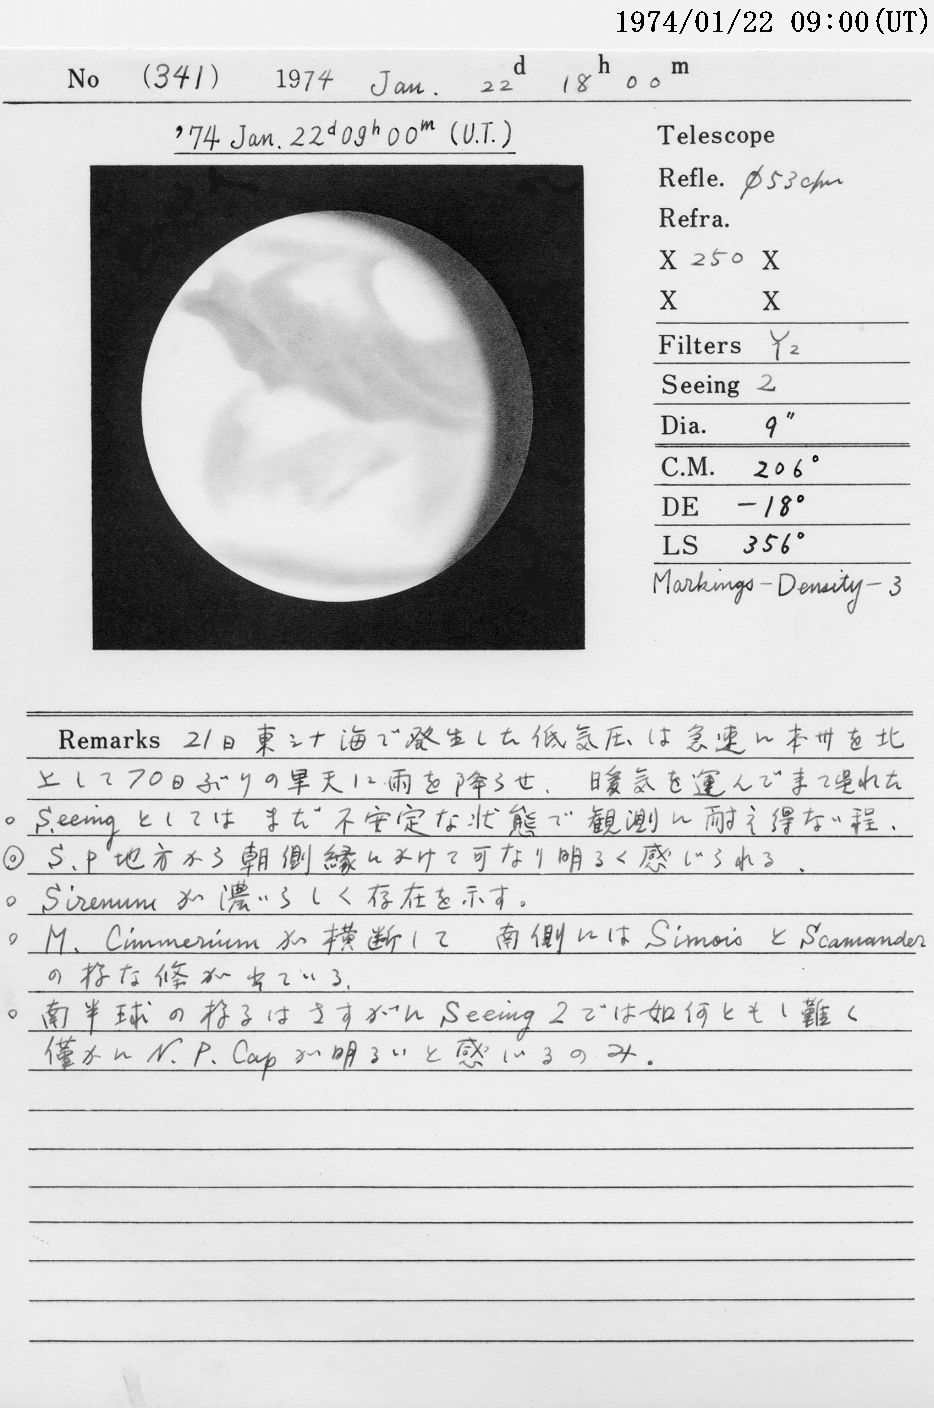 1974/01/22 09:00(UT)
No (341) 1974 Jan. 22d 18h 00m
'74 Jan. 22d09h00m (U.T.)
Telescope
Refle. φ53cm
Refra.
X 250 X
X X
Filters Y2
Seeing 2
Dia. 9"
C.M. 206°
DE -18°
LS 356°
Markings-Density-3
Remarks 21日東シナ海で発生した低気圧は急速に本州を北
上して70日ぶりの旱天に雨を降らせ、暖気を運んでまで呉れた
○ Seeingとしてはまだ不安定な状態で観測に耐え得ない程、
◎ S.P地方から朝側縁にかけて可なり明るく感じられる、
○ Sirenumが濃いらしく存在を示す。
○ M. Cimmeriumが横断して 南側にはSimoisとScamander
の様な條が出ている、
○ 南半球の様子はさすがにSeeing 2では如何ともし難く
僅かにN.P.Capが明るいと感じるのみ。